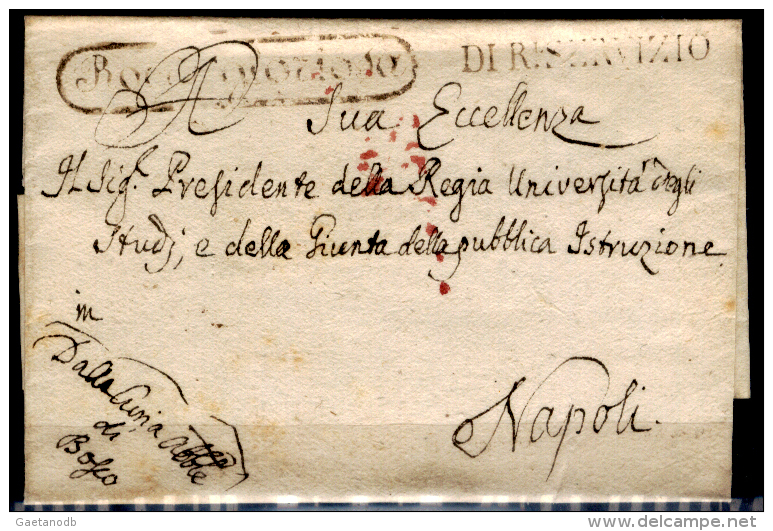 DI R. SERVIZIO
A Sua Eccellenza
Il Sig.r Presidente della Regia Università degli
Studj, e della Giunta della pubblica Istruzione
in
Napoli.
Dalla Curia Abb.le
di
Bosco
Gaetanodb
delcampe.net